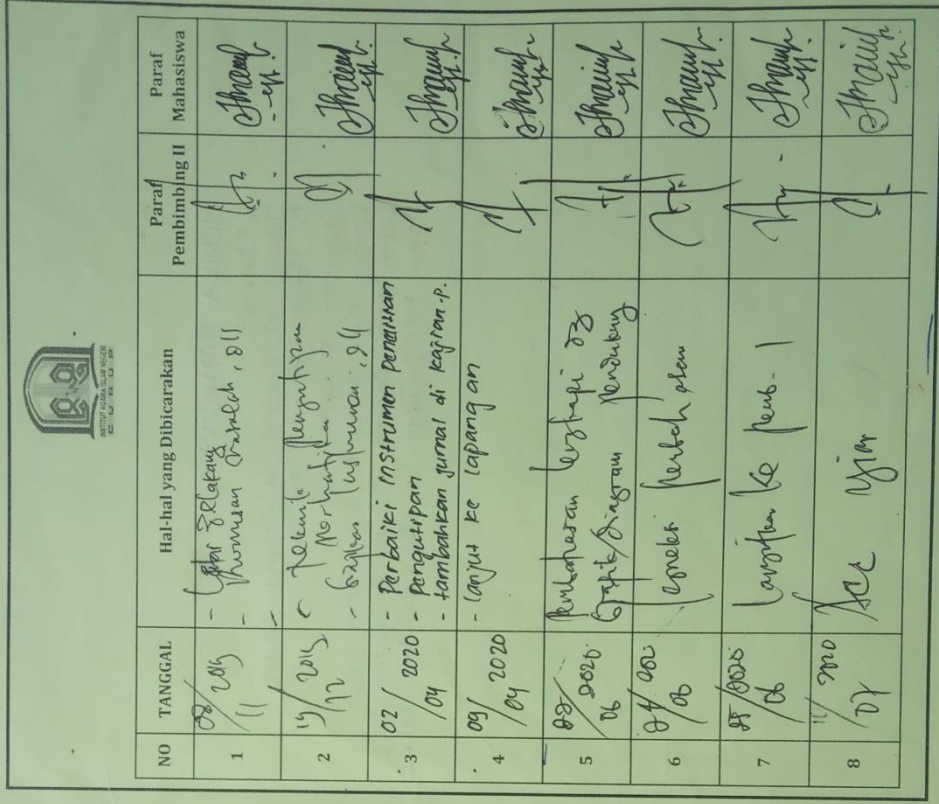 INSTITUT AGAMA ISLAM NEGERI
NO TANGGAL Hal-hal yang Dibicarakan Paraf Pembimbing II Paraf Mahasiswa
1 11 - Latar Belakang
- Rumusan Masalah, dll
-
2 12 Teknik Pengutipan
3 02/04 2020 - Perbaiki instrumen penelitian
- Pengutipan
- tambahkan jurnal di kajian.p.
4 09/04 2020 - lanjut ke lapangan
5 22/06 2020. Pembahasan lengkapi dg
Grafik/Diagram pendukung
6 24/06 Koreksi pembahasan
7 25/06 2020 Lanjutkan ke Pemb-1
8 07 2020 Acc Ujian